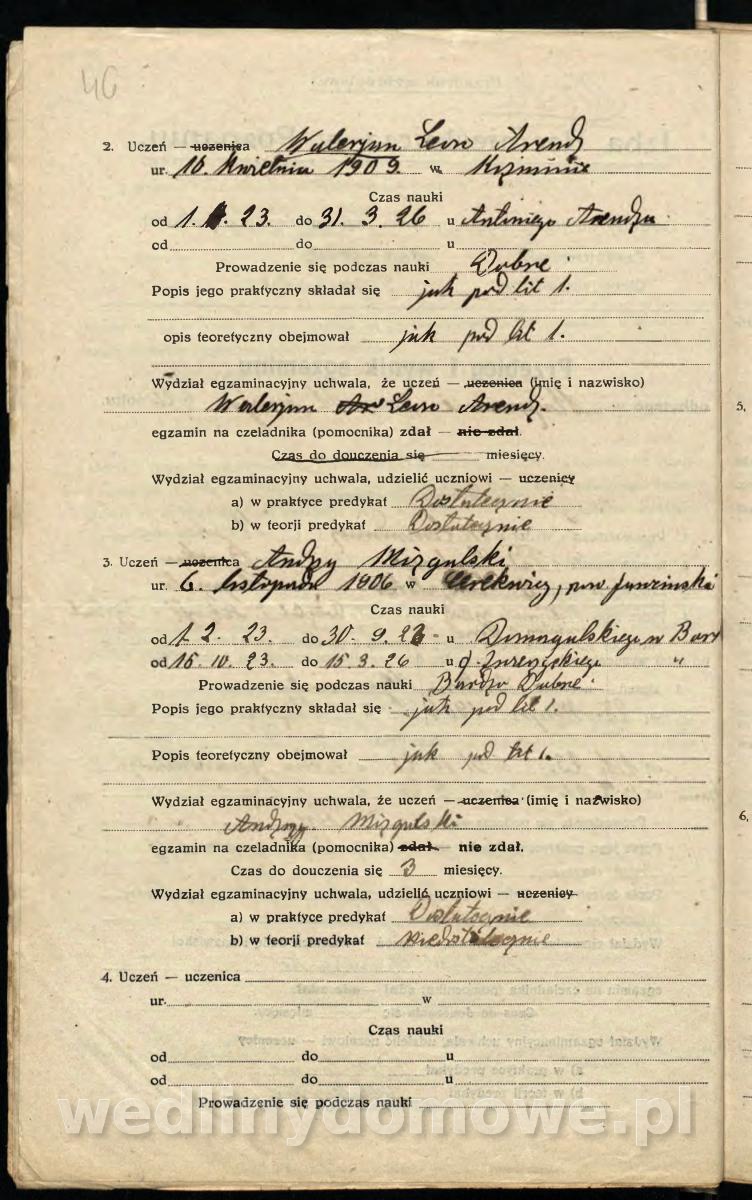 46
2. Uczeń — uczenica Walerjan Leon Arendz
ur. 10. kwietnia 1909. w Koźminie
Czas nauki
od 1. 4. 23. do 31. 3. 26 u Antoniego Arendza
od do u
Prowadzenie się podczas nauki Dobre
Popis jego praktyczny składał się jak pod lit 1.
opis teoretyczny obejmował jak pod lit 1.
Wydział egzaminacyjny uchwala, że uczeń — uczenica (imię i nazwisko)
Walerjan Leon Arendz.
egzamin na czeladnika (pomocnika) zdał — nie zdał.
Czas do douczenia się miesięcy.
Wydział egzaminacyjny uchwala, udzielić uczniowi — uczenicy
a) w praktyce predykat Dostatecznie
b) w teorji predykat Dostatecznie
3. Uczeń — uczenica Andrzy Mizgalski
ur. 6. listopada 1906 w pow
Czas nauki
od 1. 2. 23. do 30. 9. 23 u Domagalskiego w
od 15. 10. 23. do 15. 3. 26 u J. "
Prowadzenie się podczas nauki Bardzo Dobre.
Popis jego praktyczny składał się jak pod lit 1.
Popis teoretyczny obejmował jak pod lit 1.
Wydział egzaminacyjny uchwala, że uczeń — uczenica (imię i nazwisko)
Mizgalski
egzamin na czeladnika (pomocnika) zdał — nie zdał.
Czas do douczenia się 3 miesięcy.
Wydział egzaminacyjny uchwala, udzielić uczniowi — uczenicy
a) w praktyce predykat Dostatecznie
b) w teorji predykat Niedostatecznie
4. Uczeń — uczenica
ur. w
Czas nauki
od do u
od do u
Prowadzenie się podczas nauki
wedlinydomowe.pl
5.
6.